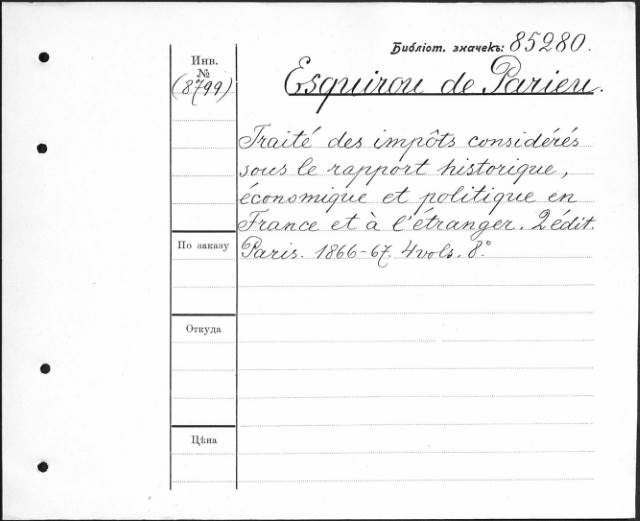 Библіот. значекъ: 85280.
Инв.
№
(8799)
Esquirou de Parieu.
Traité des impôts considérés
sous le rapport historique,
économique et politique en
France et à l'étranger. 2 édit.
Paris. 1866-67. 4 vols. 8°
По заказу
Откуда
Цѣна